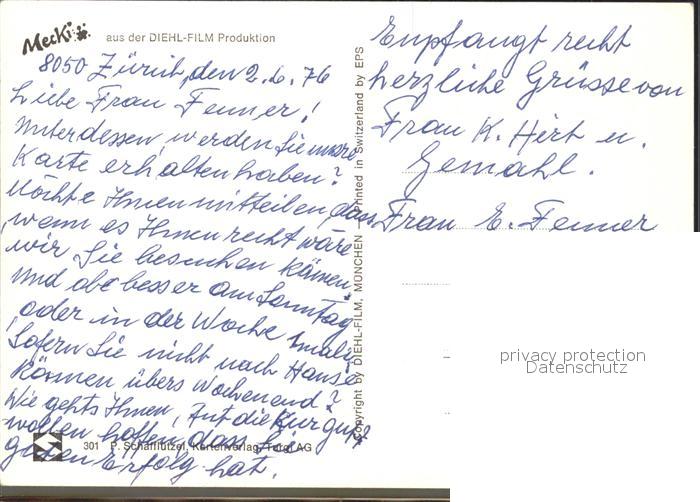 Mecki aus der DIEHL-FILM Produktion
8050 Zürich, den 2.6.76
Liebe Frau Fenner!
Unterdessen werden Sie unsre
Karte erhalten haben?
Möchte Ihnen mitteilen dass
wenn es Ihnen recht wäre
wir Sie besuchen kämen.
Und obe besser am Sonntag
oder in der Woche 1mal?
Sofern Sie nicht nach Hause
können übers Wochenend?
Wie gehts Ihnen, tut die Kur gut?
wollen hoffen dass sie
guten Erfolg hat.
301 P. Schaffützel, Kartenverlag, Turgi AG
Copyright by DIEHL-FILM, MÜNCHEN — Printed in Switzerland by EPS
Empfangt recht
herzliche Grüsse von
Frau K. Hirt u.
Gemahl.
Frau E. Fenner
privacy protection
Datenschutz